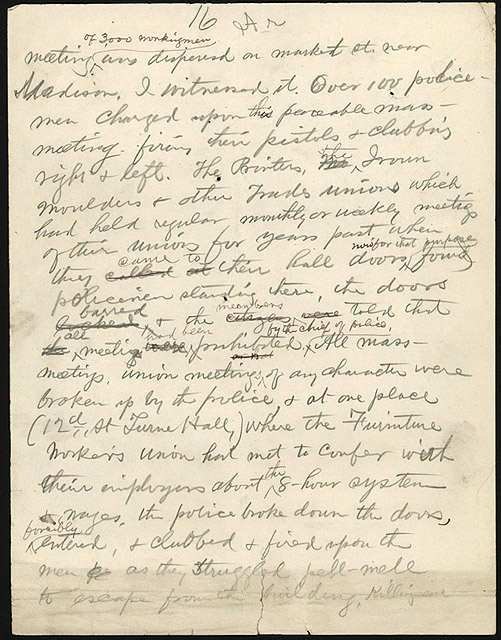 16 A.R
of 3,000 workingmen
meeting was dispersed on market st. near
Madison. I witnessed it. Over 100 police-
men charged upon this peaceable mass-
meeting firing their pistols & clubbing
right & left. The Printers, the Iron
moulders & other Trades unions which
had held regular monthly or weekly meetings
of their unions for years past when
now for that purpose
they came to called at their hall doors, found
policemen standing there, the doors
barred & the members were told that
all meetings had been prohibited by the chief of police. All mass-
meetings, union meetings, of any character were
broken up by the police & at one place
(12th St Turne Hall,) where the Furniture
Worker's Union had met to confer with
their employers about the 8-hour system
& wages, the police broke down the doors,
forcibly entered, & clubbed & fired upon the
men as they struggled pell-mell
to escape from the building, killing one